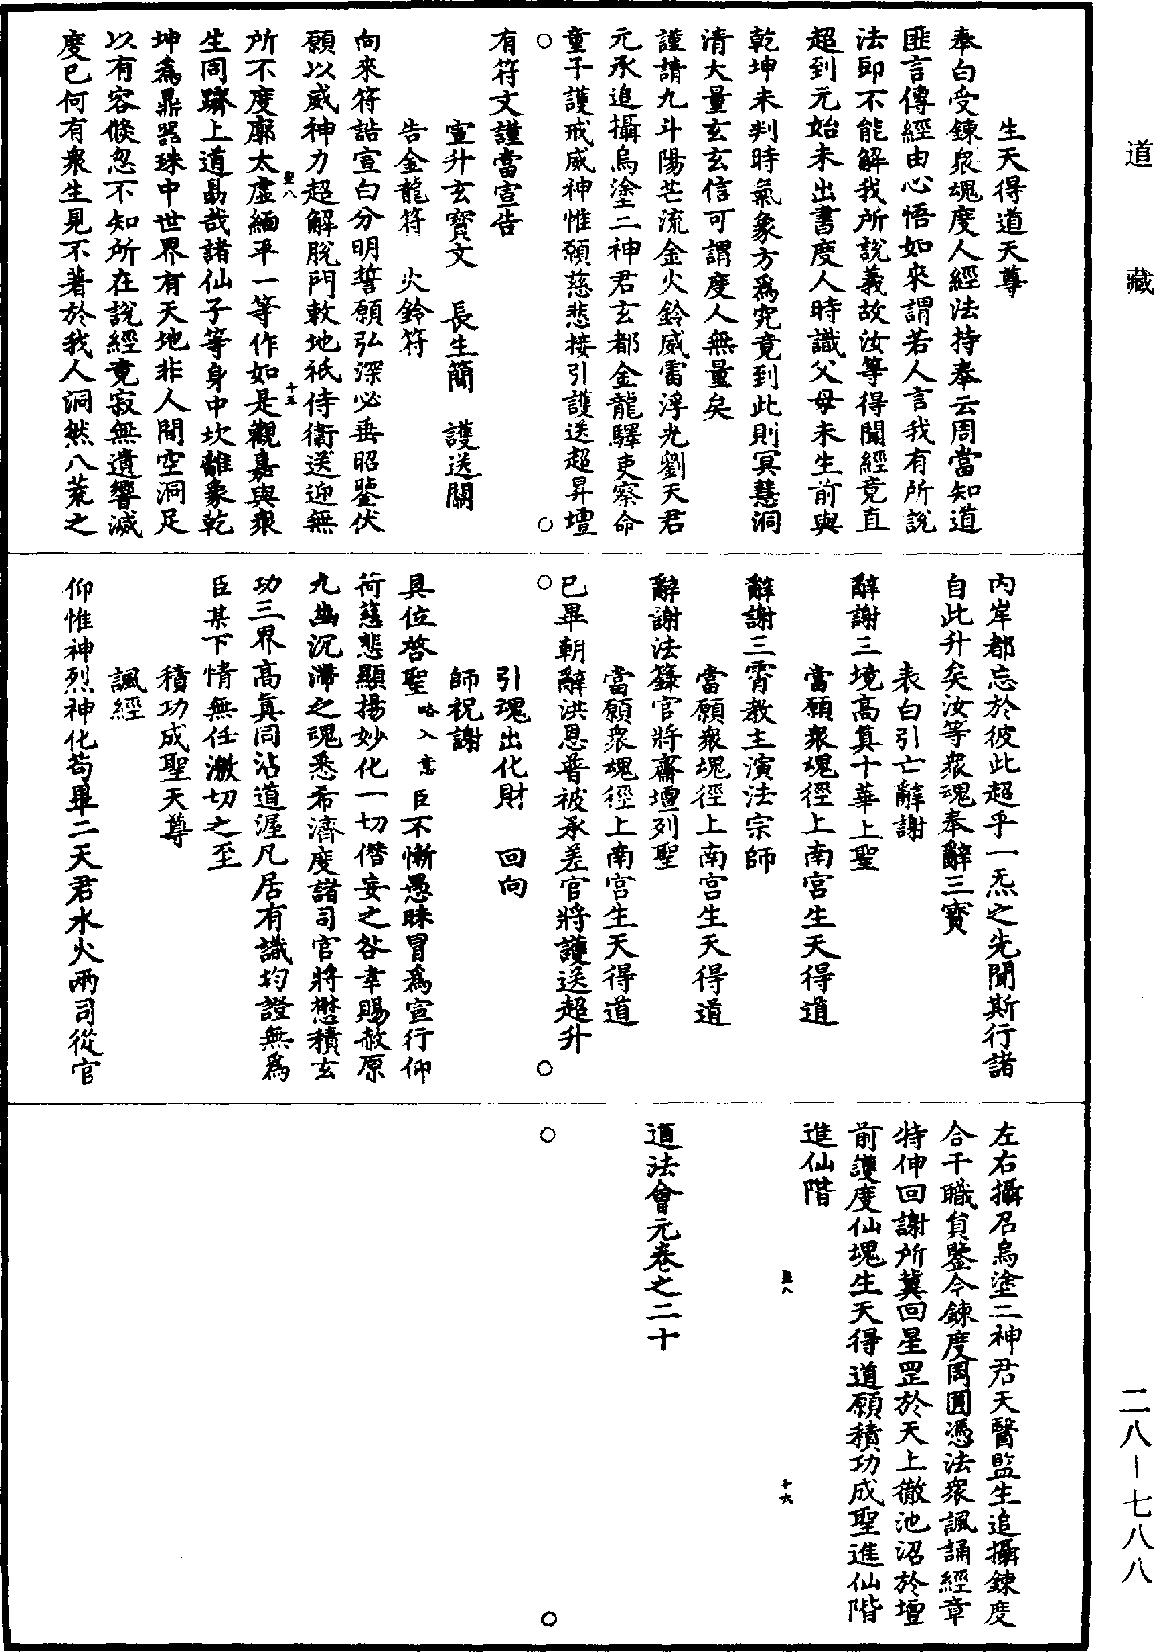 道藏
生天得道天尊
奉白受鍊衆魂度人經法持奉云周當知道
匪言傳經由心悟如來謂若人言我有所說
法即不能解我所說義故汝等得聞經竟直
超到元始未出書度人時識父母未生前與
乾坤未判時氣象方為究竟到此則冥慧洞
清大量玄玄信可謂度人無量矣
謹請九斗陽芒流金火鈴威雷浮光劉天君
元承追攝烏塗二神君玄都金龍驛吏察命
童子護戒威神惟願慈悲接引護送超昇壇
有符文謹當宣告
宣升玄寶文　長生簡　護送關
告金龍符　火鈴符
向來符誥宣白分明誓願弘深必垂昭鑒伏
願以威神力超解脫門敕地祇侍衛送迎無
所不度廓太虛緬平一等作如是觀嘉與衆
生同躋上道勗哉諸仙子等身中坎離象乾
坤為鼎器珠中世界有天地非人間空洞足
以有容倏忽不知所在說經竟寂無遺響滅
度已何有衆生見不著於我人洞然八荒之
內岸都忘於彼此超乎一炁之先聞斯行諸
自此升矣汝等衆魂奉辭三寶
表白引亡辭謝
辭謝三境高真十華上聖
當願衆魂徑上南宮生天得道
辭謝三霄教主演法宗師
當願衆魂徑上南宮生天得道
辭謝法籙官將齋壇列聖
當願衆魂徑上南宮生天得道
已畢朝辭洪恩普被承差官將護送超升
引魂出化財　回向
師祝謝
具位啓聖略入意臣不慚愚昧冒為宣行仰
荷慈悲顯揚妙化一切僭妄之咎幸賜赦原
九幽沉滯之魂悉希濟度諸司官將懋積玄
功三界高真同沾道渥凡居有識均證無為
臣某下情無任激切之至
積功成聖天尊
諷經
仰惟神烈神化苟畢二天君水火兩司從官
左右攝召烏塗二神君天醫監生追攝鍊度
合干職員鑒今鍊度周圓憑法衆諷誦經章
特伸回謝所冀回星罡於天上徹池沼於壇
前護度仙魂生天得道願積功成聖進仙階
進仙階
道法會元卷之二十
十五
十六
二八—七八八